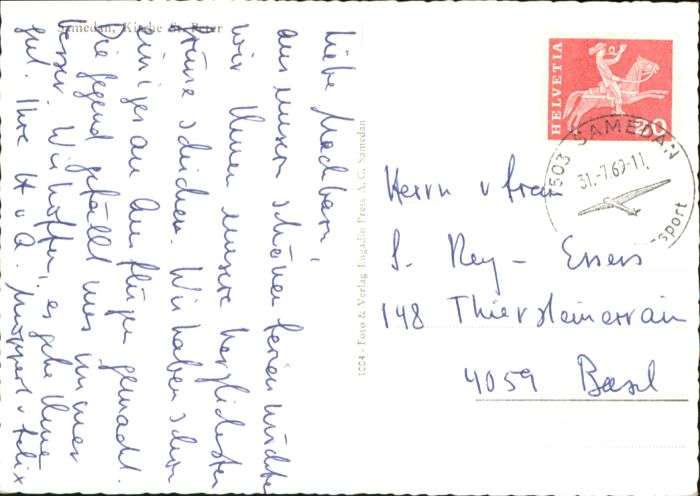 Samedan, Kirche St. Peter
Liebe Nachbarn,
aus unsern schönen Ferien möchten
wir Ihnen unsere herzlichsten
Grüsse schicken. Wir haben schon
einiges an Ausflügen gemacht.
Die Gegend gefällt uns immer
besser. Wir hoffen, es gehe Ihnen
gut. Ihre H. u. A. u. Felix
1004 - Foto & Verlag Engadin Press A.G. Samedan
HELVETIA
20
7503 SAMEDAN
31.-7.69-11
sport
Herrn u Frau
S. Rey - Essers
148 Thiersteinerrain
4059 Basel